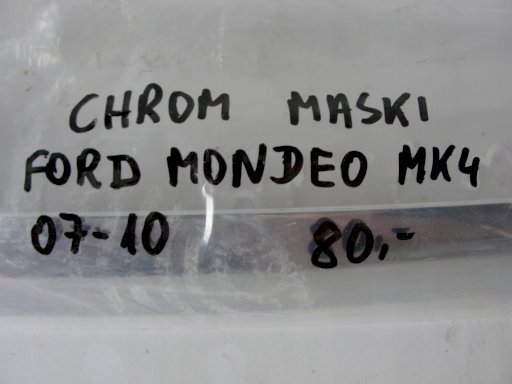 CHROM MASKI
FORD MONDEO MK4
07-10 80,-